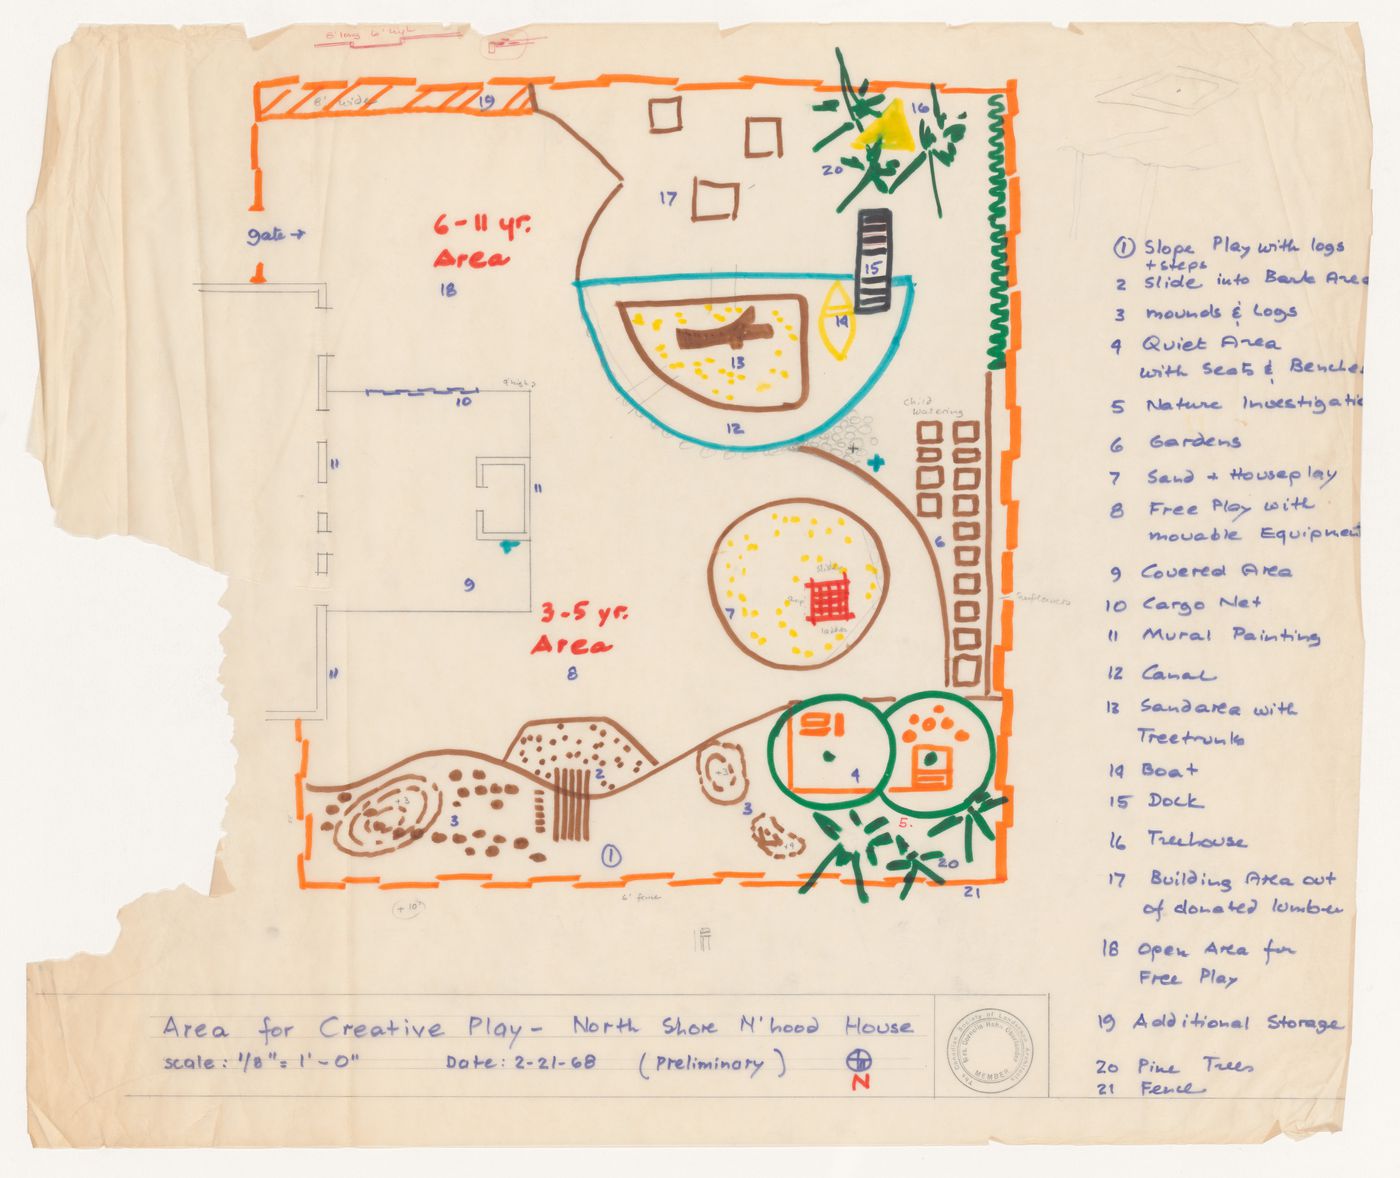 6' long 6' high
8' wide
19
16
20
17
gate →
6-11 yr.
Area
18
15
14
13
12
10
11
11
child
watering
6
9
slide
7
3-5 yr.
Area
8
sunflowers
11
2
+3
+3
3
3
4
5.
+4
1
20
21
+10'
6' fence
① Slope Play with logs
+ steps
2 Slide into Bark Area
3 mounds & Logs
4 Quiet Area
with Seats & Benches
5 Nature Investigatio
6 Gardens
7 Sand + Houseplay
8 Free Play with
movable Equipment
9 Covered Area
10 Cargo Net
11 Mural Painting
12 Canal
13 Sandarea with
Treetrunks
14 Boat
15 Dock
16 Treehouse
17 Building Area out
of donated lumber
18 Open Area for
Free Play
19 Additional Storage
20 Pine Trees
21 Fence
Area for Creative Play - North Shore N'hood House
scale: 1/8" = 1'-0" Date: 2-21-68 (Preliminary)
N
The Canadian Society of Landscape Architects
Mrs. Cornelia Hahn Oberlander
MEMBER